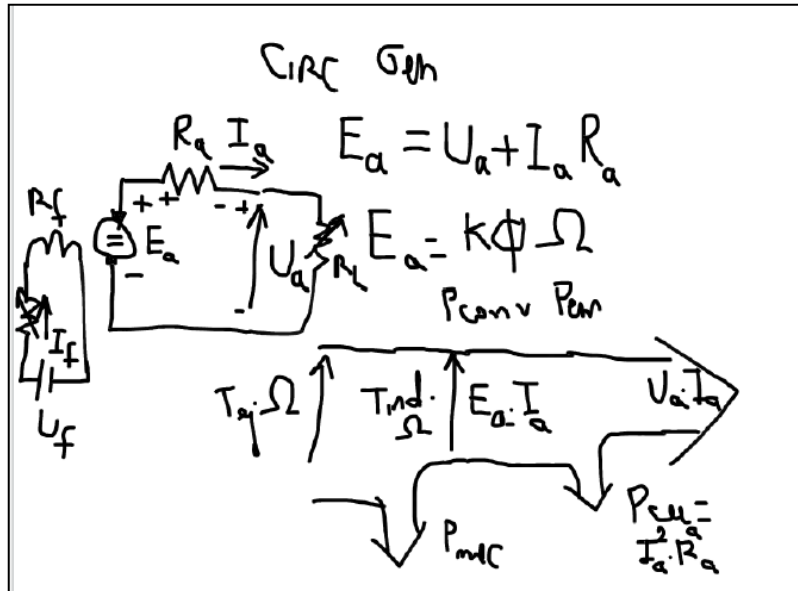 CIRC Gen
Ra Ia
Ea = Ua + Ia Ra
Rf
+ + - +
= Ea
Ua RL
Ea = kϕ Ω
- -
If
Uf
Pconv Pem
Tej·Ω
Tind·Ω
Ea·Ia
Ua·Ia
Pmec
Pcua =
Ia²·Ra